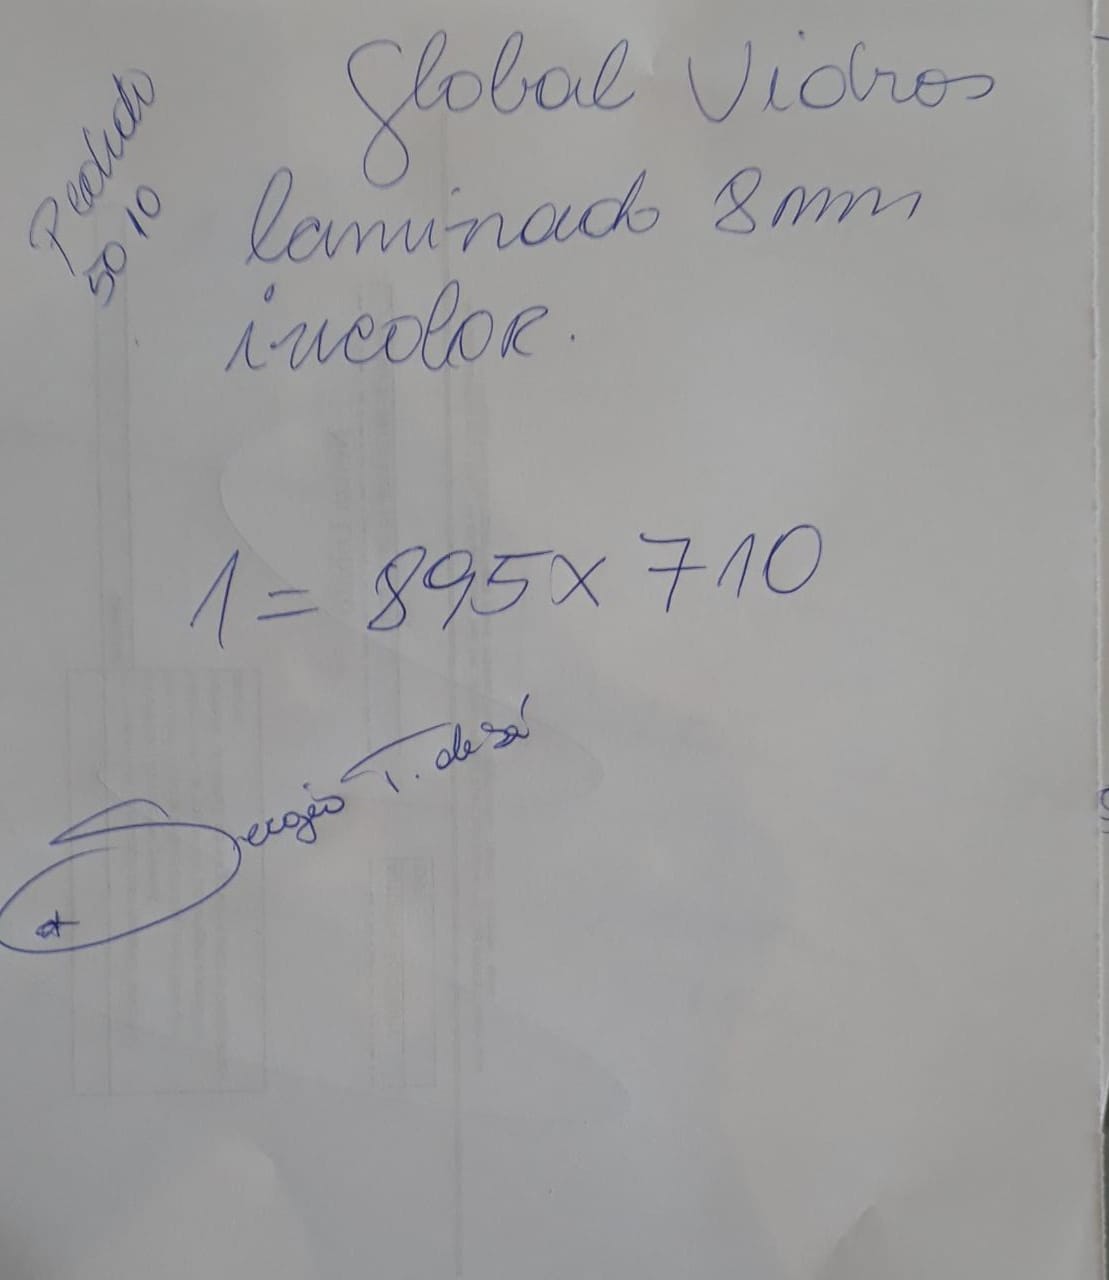 Global Vidros
Pedido
5010
laminado 8mm
incolor.
1 = 895 x 710
Sergio T. de Sá